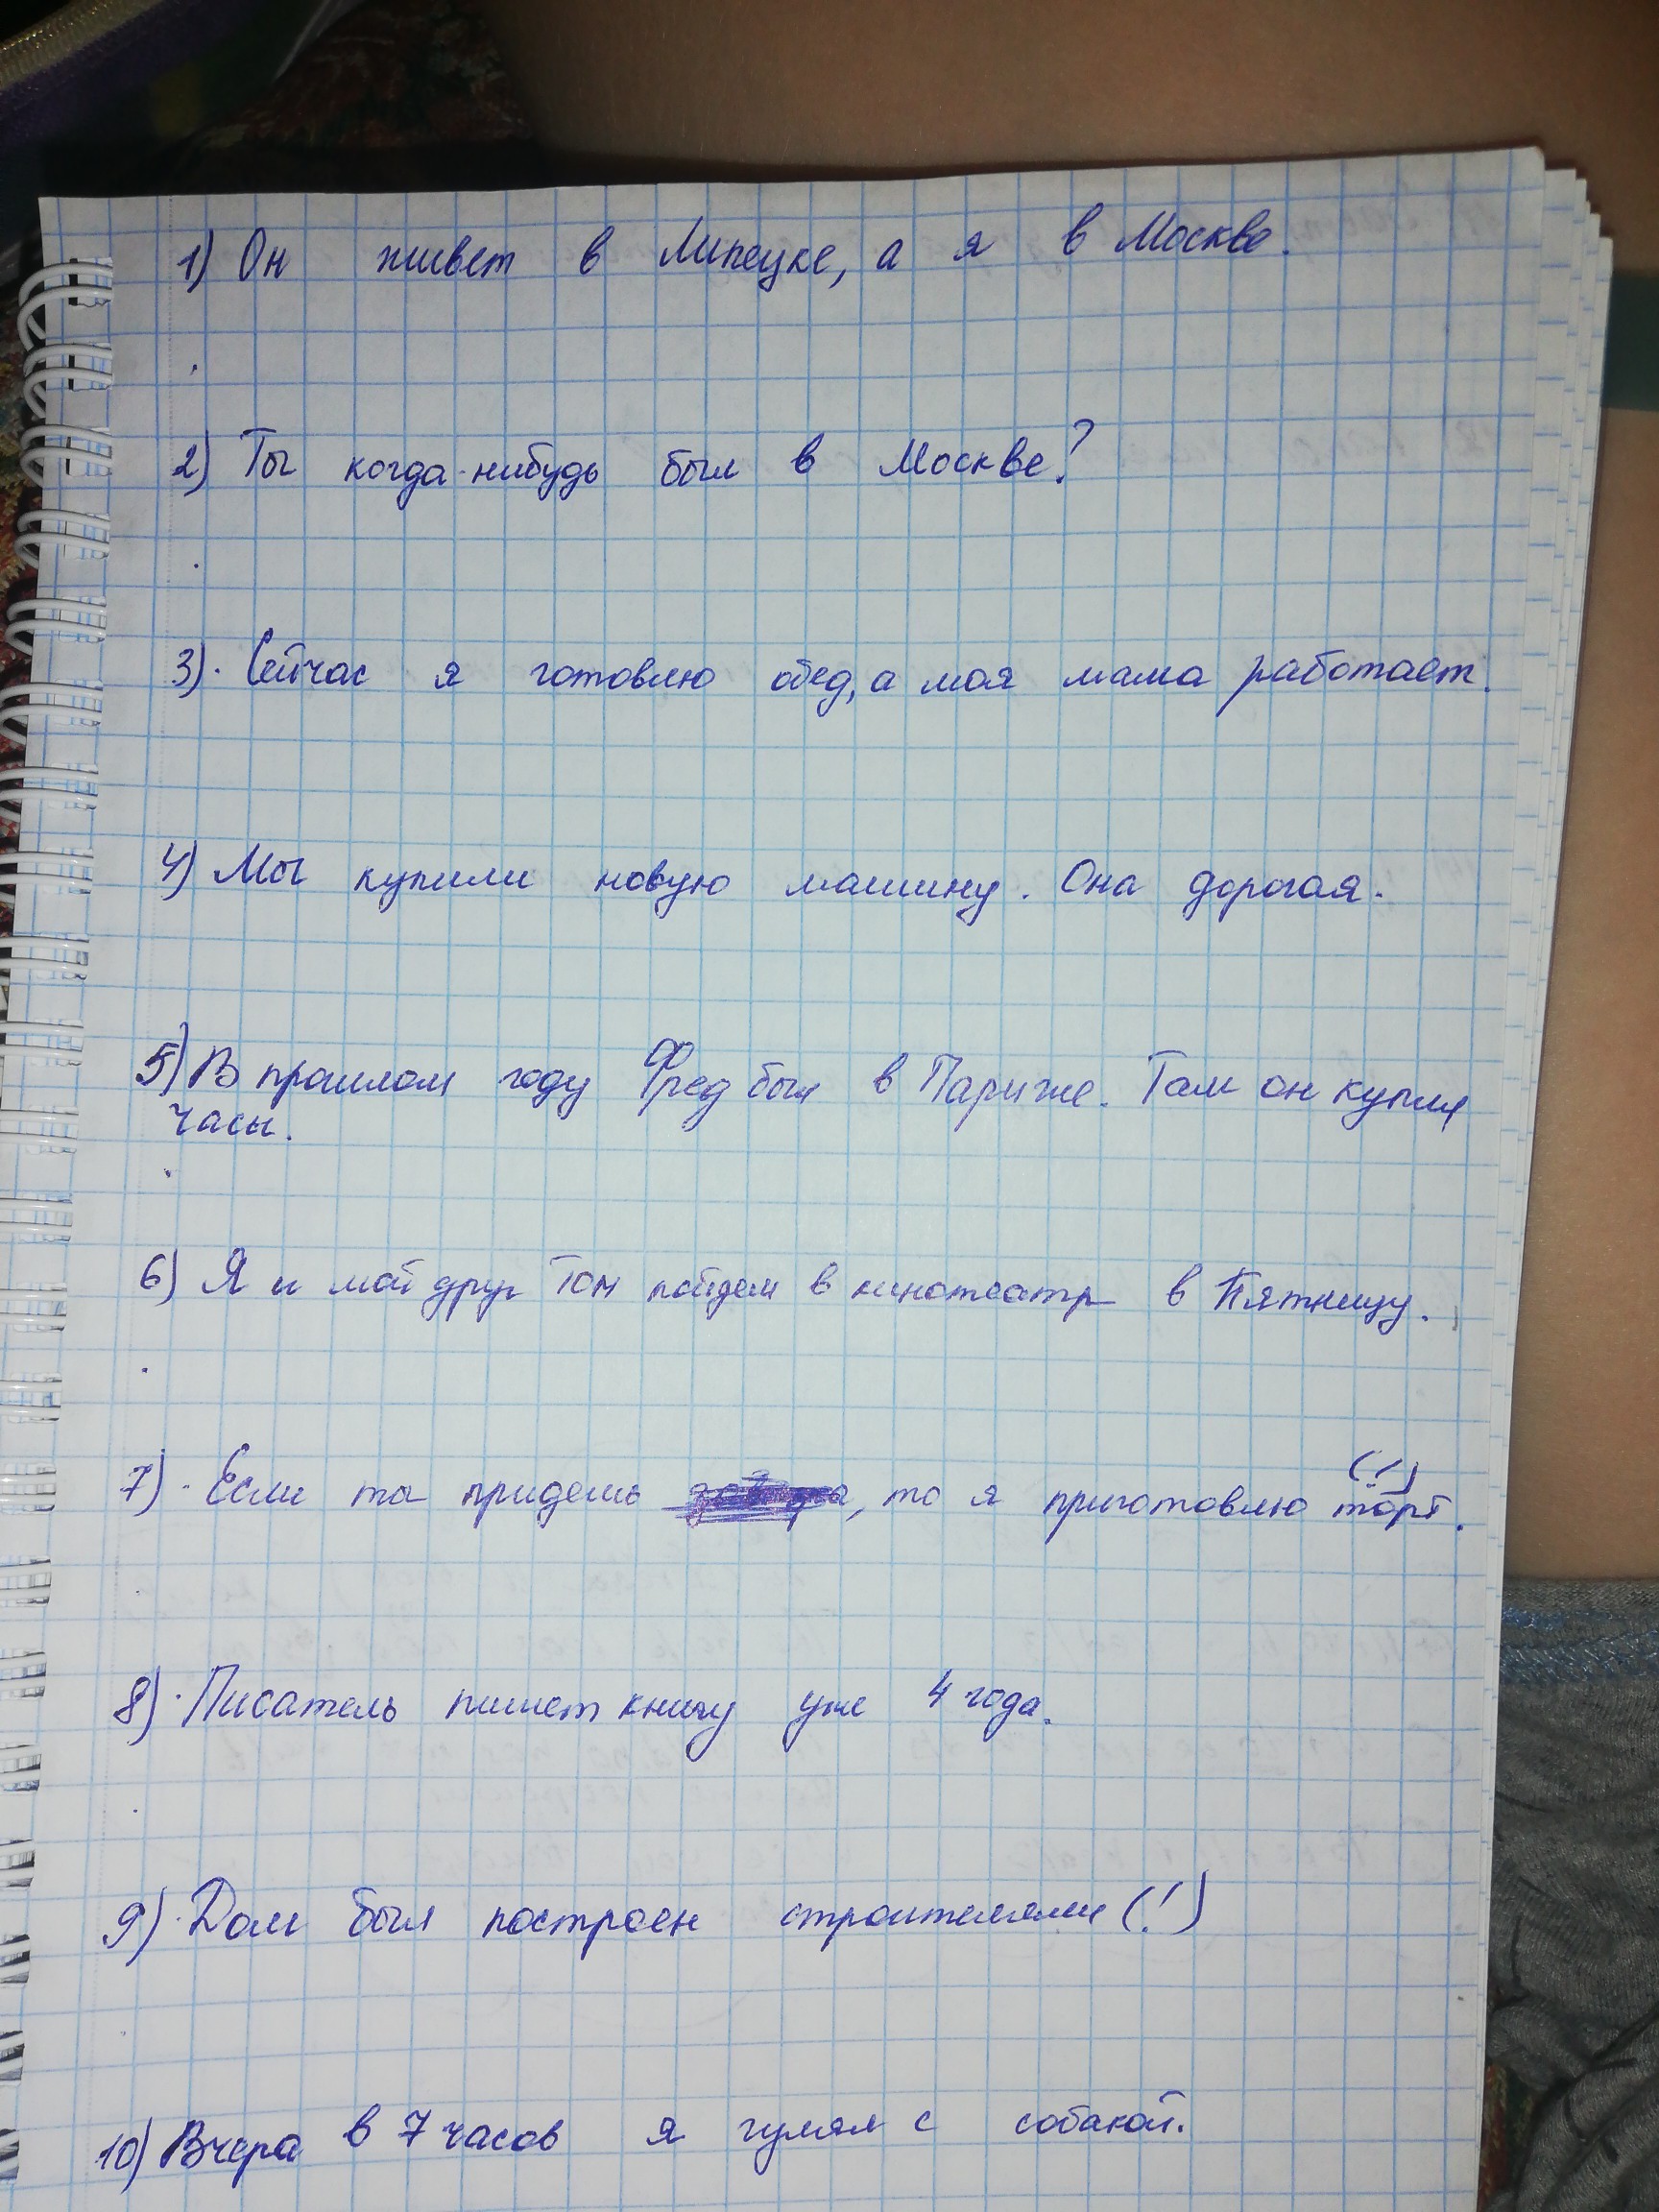 1) Он живет в Липецке, а я в Москве.
2) Ты когда-нибудь был в Москве?
3). Сейчас я готовлю обед, а моя мама работает.
4) Мы купили новую машину. Она дорогая.
5) В прошлом году Фред был в Париже. Там он купил
часы.
6) Я и мой друг Том пойдем в кинотеатр в Пятницу.
(!)
7). Если ты придешь, то я приготовлю торт.
8). Писатель пишет книгу уже 4 года.
9). Дом был построен строителями (!)
10) Вчера в 7 часов я гулял с собакой.